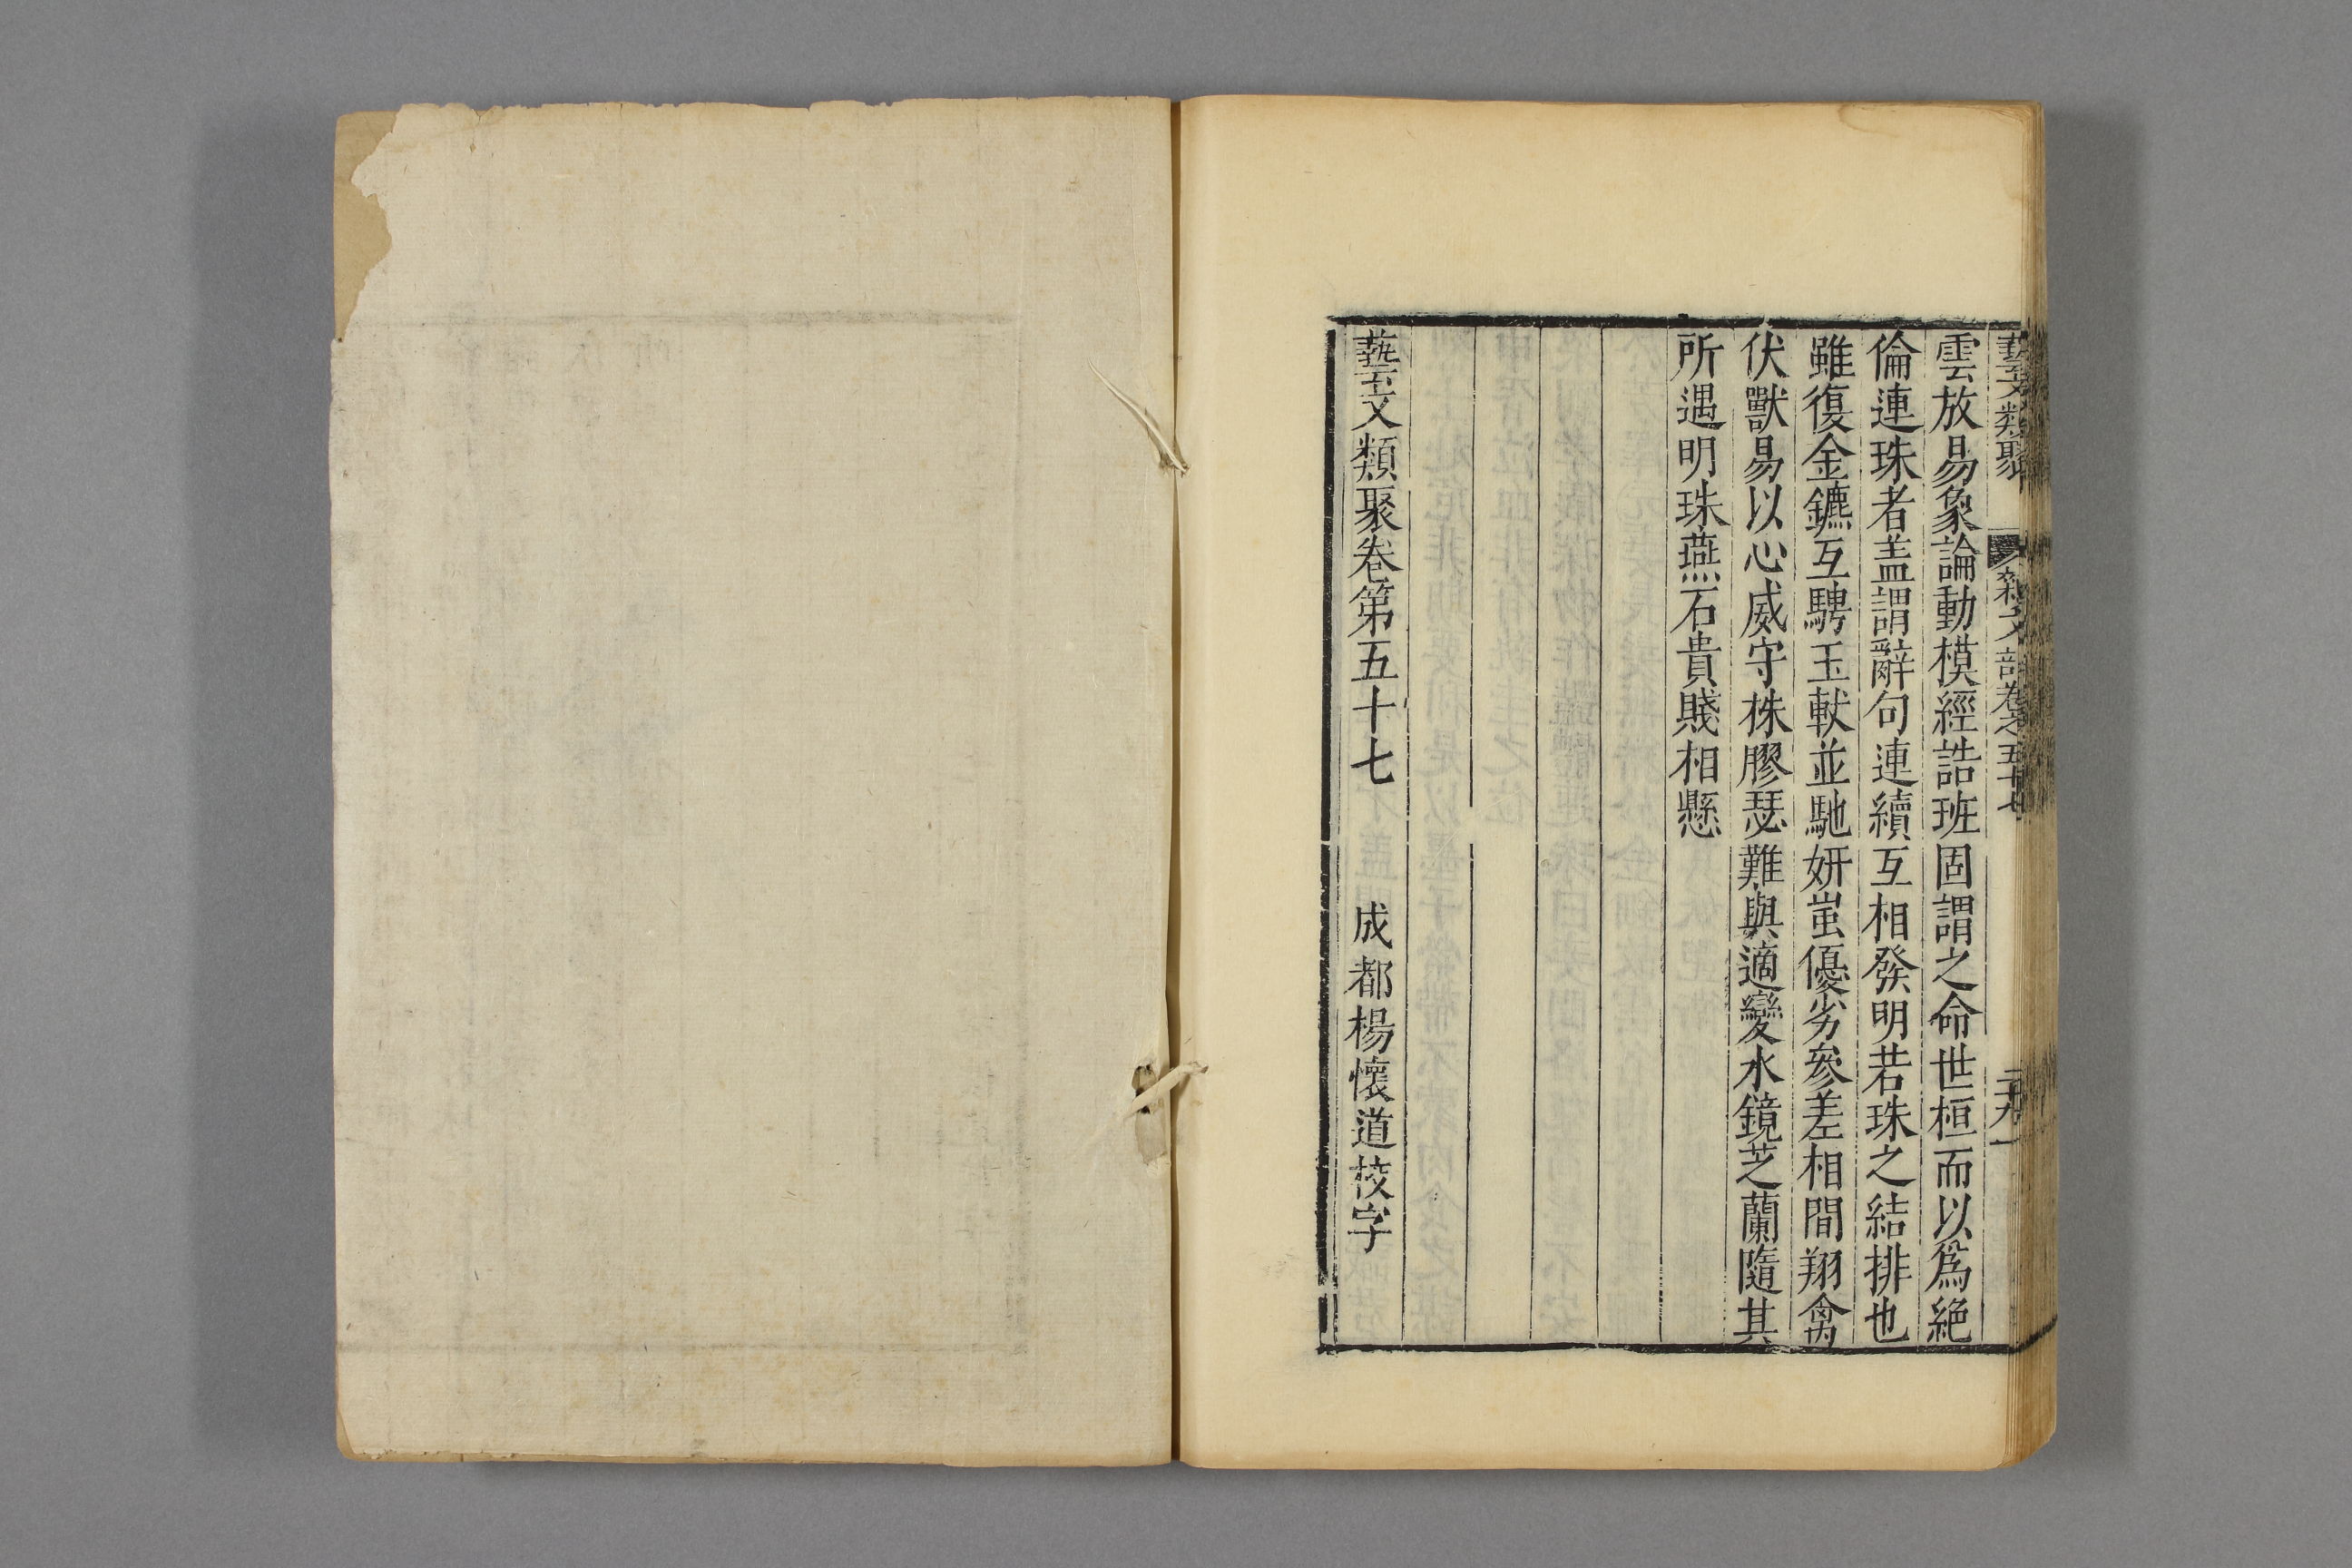 藝文類聚 雜文部卷之五十七 二十九
雲放易象論動模經誥班固謂之命世桓而以爲絶
倫連珠者盖謂辭句連續互相發明若珠之結排也
雖復金鑣互騁玉軑並馳妍蚩優劣叅差相間翔禽
伏獸易以心威守株膠瑟難與適變水鏡芝蘭隨其
所遇明珠燕石貴賤相懸
藝文類聚卷第五十七 成都楊懷道校字